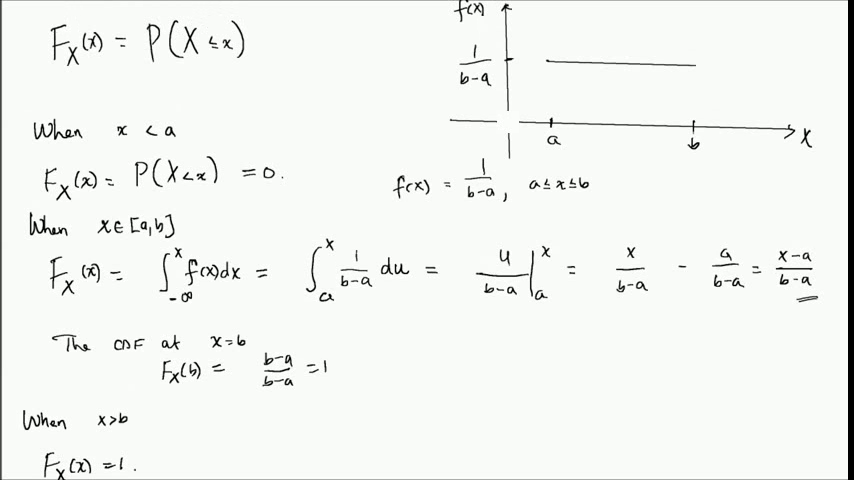 F_X(x) = P(X ≤ x)
f(x)
1/(b-a)
a b X
f(x) = 1/(b-a), a ≤ x ≤ b
When x < a
F_X(x) = P(X < x) = 0.
When x ∈ [a,b]
F_X(x) = ∫_{-∞}^{x} f(x)dx = ∫_{a}^{x} 1/(b-a) du = u/(b-a) |_{a}^{x} = x/(b-a) - a/(b-a) = (x-a)/(b-a)
The CDF at x=b
F_X(b) = (b-a)/(b-a) = 1
When x>b
F_X(x) = 1.